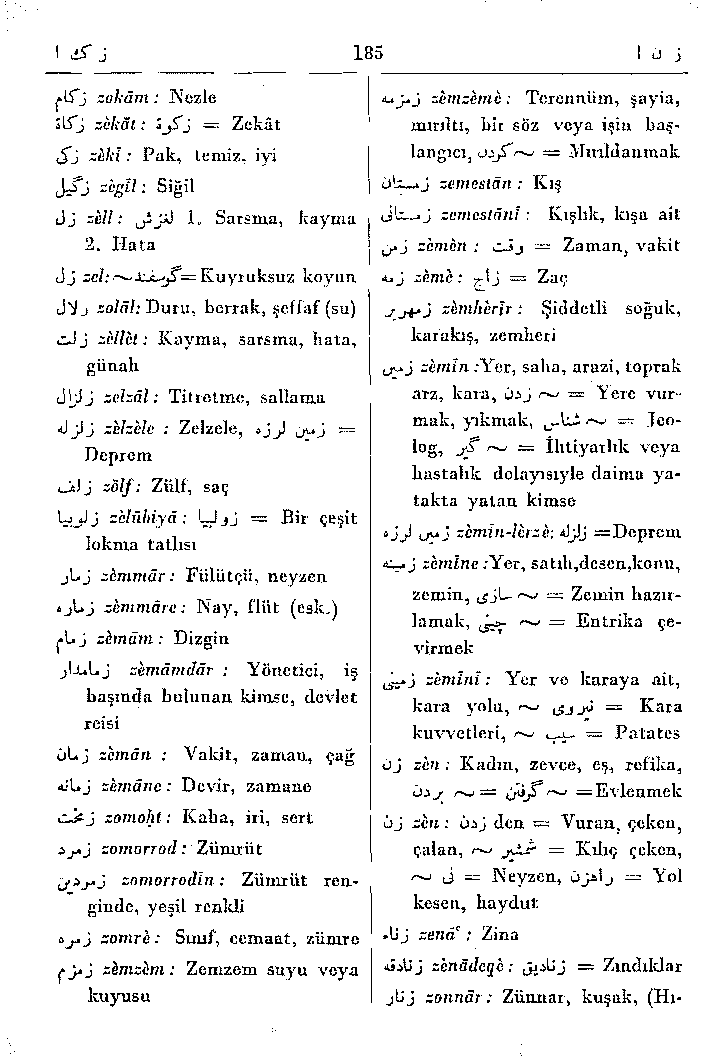 ز ک ا 185 ز ن ا
زکام zokām: Nezle
زکاة zèkāt: زکوة = Zekât
زکی zèkī: Pak, temiz, iyi
زگیل zègīl: Siğil
زل zèll: لغزش 1. Sarsma, kayma
2. Hata
زل zel: ~ گوسفند = Kuyruksuz koyun
زلال zolāl: Duru, berrak, şeffaf (su)
زلت zèllèt: Kayma, sarsma, hata,
günah
زلزال zelzāl: Titretme, sallama
زلزله zèlzèle : Zelzele, زمین لرزه =
Deprem
زلف zölf: Zülf, saç
زلوبیا zèlūbiyā: زولبیا = Bir çeşit
lokma tatlısı
زمار zèmmār: Fülütçü, neyzen
زماره zèmmāre: Nay, flüt (esk.)
زمام zèmām: Dizgin
زمامدار zèmāmdār : Yönetici, iş
başında bulunan kimse, devlet
reisi
زمان zèmān : Vakit, zaman, çağ
زمانه zèmāne: Devir, zamane
زمخت zomoḫt: Kaba, iri, sert
زمرد zomorrod: Zümrüt
زمردین zomorrodīn: Zümrüt ren-
ginde, yeşil renkli
زمره zomrè: Sınıf, cemaat, zümre
زمزم zèmzèm: Zemzem suyu veya
kuyusu
زمزمه zèmzèmè: Terennüm, şayia,
mırıltı, bir söz veya işin baş-
langıcı, کردن ~ = Mırıldanmak
زمستان zemestān: Kış
زمستانی zemestānī: Kışlık, kışa ait
زمن zèmèn : وقت = Zaman, vakit
زمه zèmè: زاج = Zaç
زمهریر zèmhèrīr: Şiddetli soğuk,
karakış, zemheri
زمین zèmīn :Yer, saha, arazi, toprak
arz, kara, زدن ~ = Yere vur-
mak, yıkmak, شناس ~ = Jeo-
log, گیر ~ = İhtiyarlık veya
hastalık dolayısıyle daima ya-
takta yatan kimse
زمین لرزه zèmīn-lèrzè: زلزله =Deprem
زمینه zèmīne :Yer, satıh,desen,konu,
zemin, سازی ~ = Zemin hazır-
lamak, چینی ~ = Entrika çe-
virmek
زمینی zèmīnī: Yer ve karaya ait,
kara yolu, نیروی ~ = Kara
kuvvetleri, سیب ~ = Patates
زن zèn: Kadın, zevce, eş, refika,
بردن ~ = گرفتن ~ =Evlenmek
زن zèn: زدن den = Vuran, çeken,
çalan, شمشیر ~ = Kılıç çeken,
نی ~ = Neyzen, راهزن = Yol
kesen, haydut
زناء zenāʿ: Zina
زنادقه zènādeqè: زنادیق = Zındıklar
زنار zonnār: Zünnar, kuşak, (Hı-